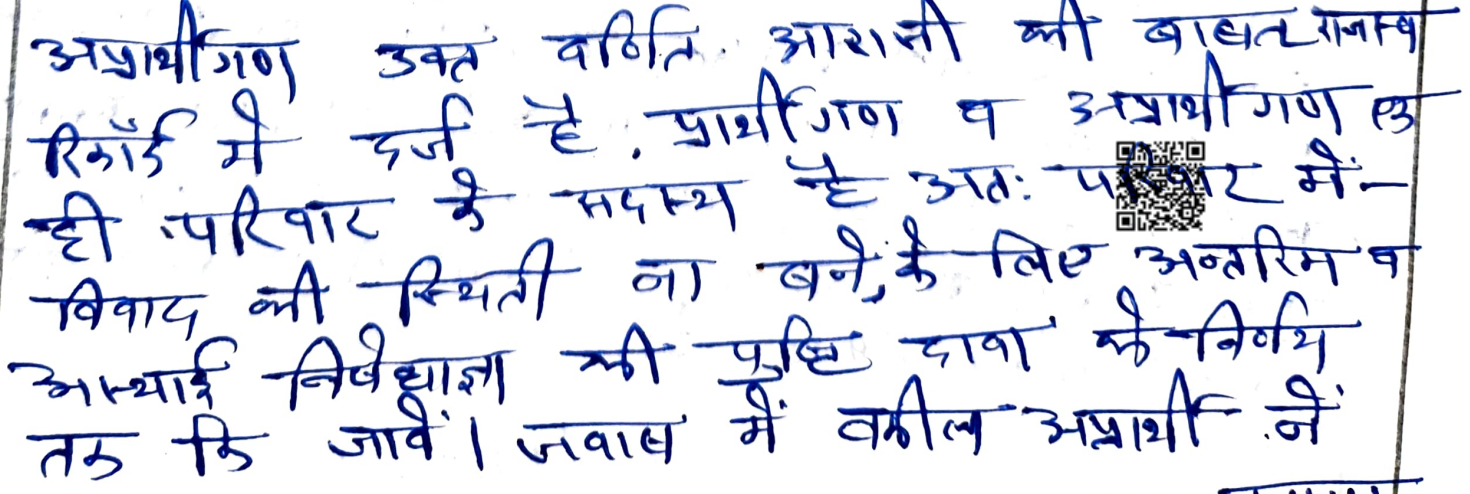 अप्रार्थीगण उक्त वर्णित आराजी की बाबत राजस्व
रिकॉर्ड में दर्ज है. प्रार्थीगण व अप्रार्थीगण एक
ही परिवार के सदस्य है अतः परिवार में:-
विवाद की स्थिती ना बने, के लिए अन्तरिम व
अस्थाई निषेधाज्ञा की पुष्टि दावा के निर्णय
तक कि जावें। जवाब में वकील अप्रार्थी नें